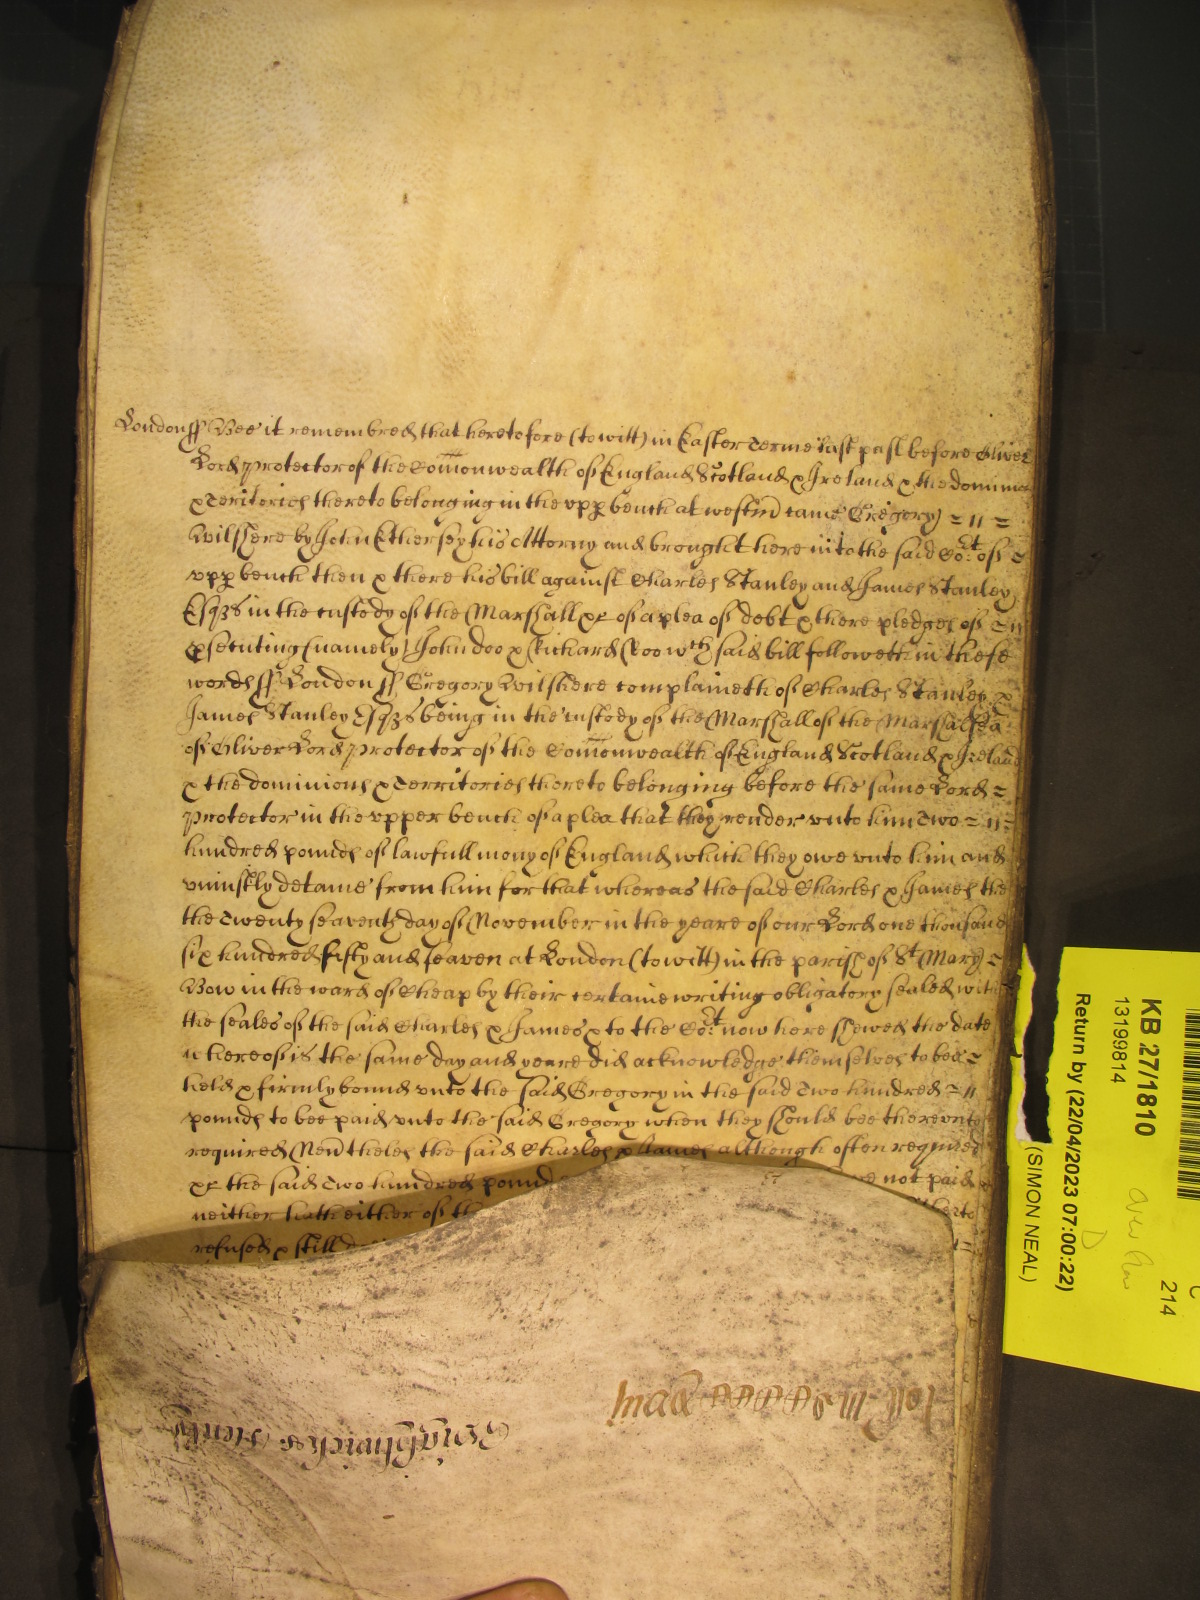 London ss Bee it remembred that heretofore (to witt) in Easter Terme last past before Oliver
Lord protector of the Com̄onwealth of England Scotland & Ireland & the dominions
& Teritories thereto belonging in the upp bench at westm̄ came Gregory
Wilshere by John Ethersey his Attorny and brought here into the said Cot: of
upp bench then & there his bill against Charles Stanley and James Stanley
Esqs in the custody of the Marshall &c of a plea of debt & there pledges of
psecuting (namely) John doo & Richard Roo wch said bill followeth in these
words ss London ss Gregory Wilshere complaineth of Charles Stanley &
James Stanley Esqs being in the custody of the Marshall of the Marshalsea
of Oliver Lord protector of the Com̄onwealth of England Scotland & Ireland
& the dominions & Territories thereto belonging before the same Lord
protector in the upper bench of a plea that they render unto him Two
hundred pounds of lawfull mony of England which they owe unto him and
uniustly detaine from him for that whereas the said Charles & James the
the Twenty seaventh day of November in the yeare of our Lord one thousand
six hundred fifty and seaven at London (to witt) in the parish of St Mary
Bow in the ward of Cheap by their certaine writing obligatory sealed with
the seales of the said Charles & James & to the Cot: now here shewed the date
whereof is the same day and yeare did acknowledge themselves to bee
held & firmly bound unto the said Gregory in the said Two hundred
pounds to bee paid unto the said Gregory when they should bee thereunto
required Nevtheles the said Charles & James although often required
&c the said Two hundred pounds not paid
neither hath either of th
refused & still d
KB 27/1810
13199814
Return by (22/04/2023 07:00:22)
(SIMON NEAL)
214